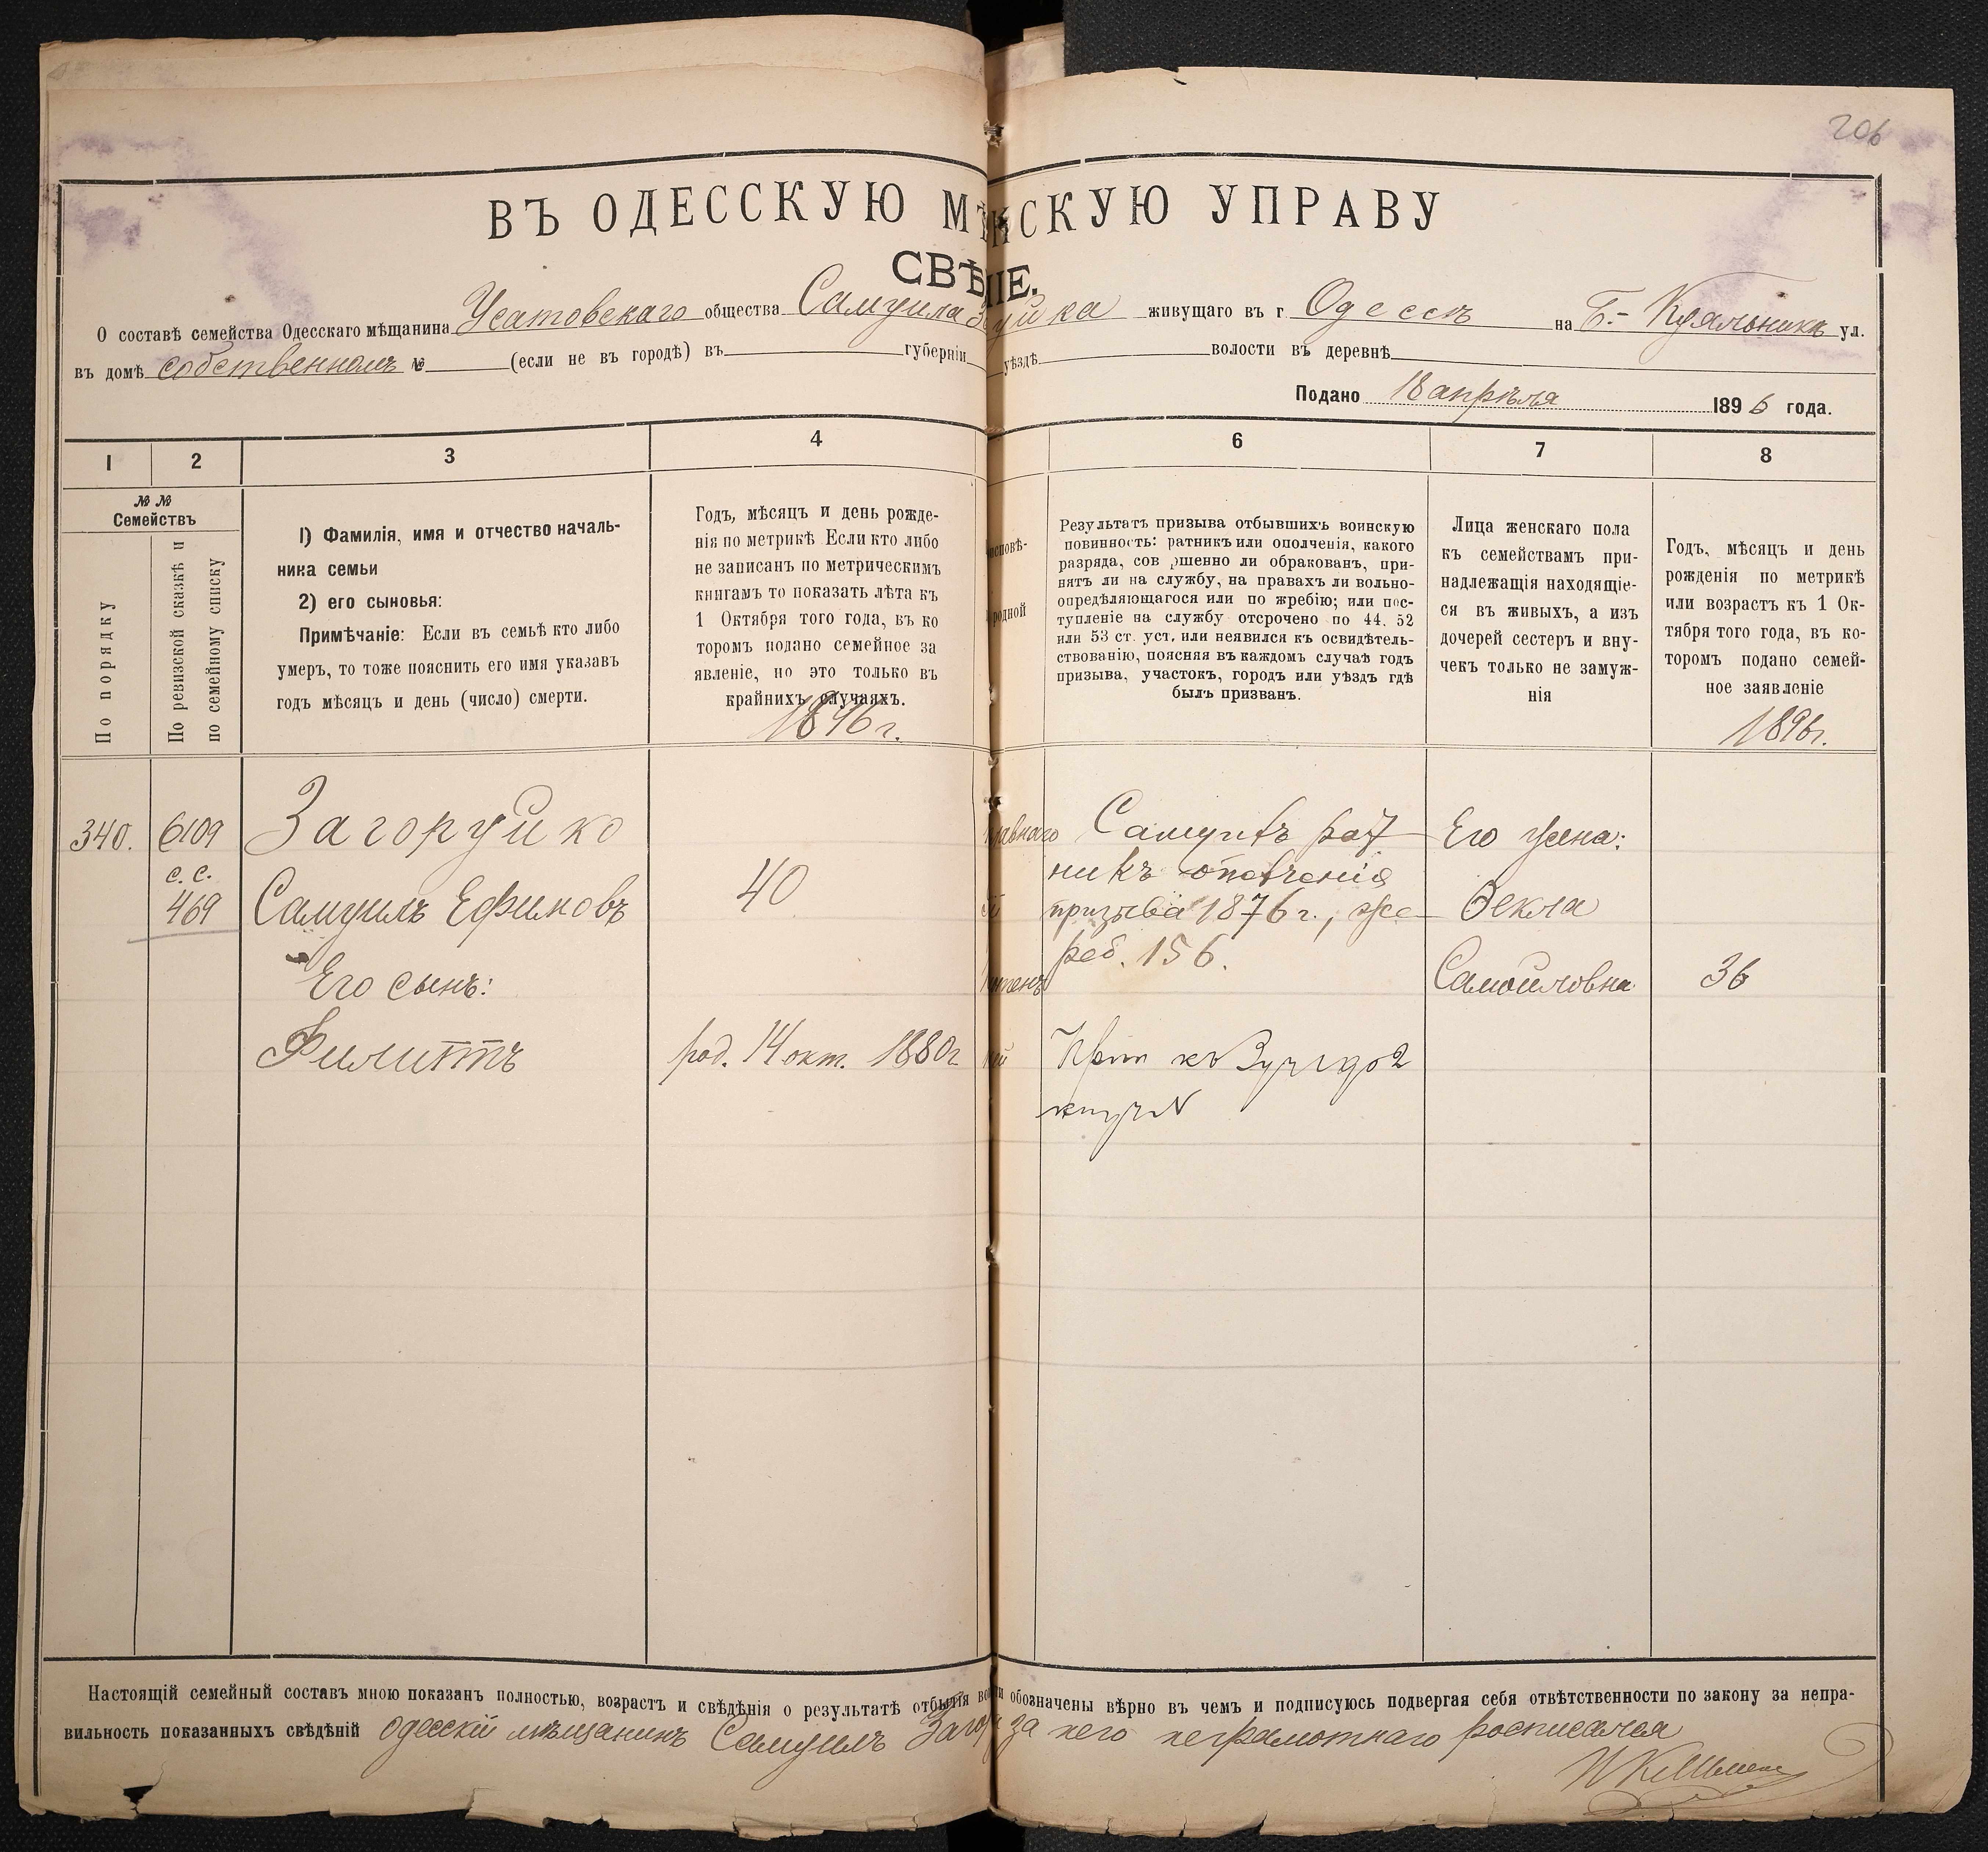 206
ВЪ ОДЕССКУЮ МѢ НСКУЮ УПРАВУ
СВѢ НІЕ.
О составѣ семейства Одесскаго мѣщанина Усатовскаго общества Самуила З уйка живущаго въ г Одессѣ на Б.- Куяльникѣ ул.
въ домѣ собственномъ № (если не въ городѣ) въ губерніи уѣздѣ волости въ деревнѣ
Подано 18 апрѣля 1896 года.
1 2 3 4 6 7 8
№ №
Семействъ
По порядку
По ревизской сказкѣ и
по семейному списку
1) Фамилія, имя и отчество началь-
ника семьи
2) его сыновья:
Примѣчаніе: Если въ семьѣ кто либо
умеръ, то тоже пояснить его имя указавъ
годъ мѣсяцъ и день (число) смерти.
Годъ, мѣсяцъ и день рожде-
нія по метрикѣ Если кто либо
не записанъ по метрическимъ
книгамъ то показать лѣта къ
1 Октября того года, въ ко
торомъ подано семейное за
явленіе, но это только въ
крайнихъ случаяхъ.
1896 г.
исповѣ-
родной
Результатъ призыва отбывшихъ воинскую
повинность: ратникъ или ополченія, какого
разряда, сов ршенно ли обракованъ, при-
нятъ ли на службу, на правахъ ли вольно-
опредѣляющагося или по жребію; или пос-
тупленіе на службу отсрочено по 44. 52
или 53 ст. уст, или неявился къ освидѣтель-
ствованію, поясняя въ каждомъ случаѣ годъ
призыва, участокъ, городъ или уѣздъ гдѣ
былъ призванъ.
Лица женскаго пола
къ семействамъ при-
надлежащія находящіе-
ся въ живыхъ, а изъ
дочерей сестеръ и вну-
чекъ только не замуж-
нія
Годъ, мѣсяцъ и день
рожденія по метрикѣ
или возрастъ къ 1 Ок-
тября того года, въ ко-
торомъ подано семей-
ное заявленіе
1896 г.
340. 6109 Загоруйко славнаго Самуилъ рат Его жена:
с. с. никъ ополченія
469 Самуилъ Ефимовъ 40 призыва 1876 г., же- Ѳекла
реб. 156.
Его сынъ: Самойловна 36
Филиппъ род. 14 окт. 1880 г.
Настоящій семейный составъ мною показанъ полностью, возрастъ и свѣдѣнія о результатѣ отбытія во и обозначены вѣрно въ чемъ и подписуюсь подвергая себя отвѣтственности по закону за непра-
вильность показанныхъ свѣдѣній одесскій мѣщанинъ Самуилъ Заго за него неграмотнаго росписался